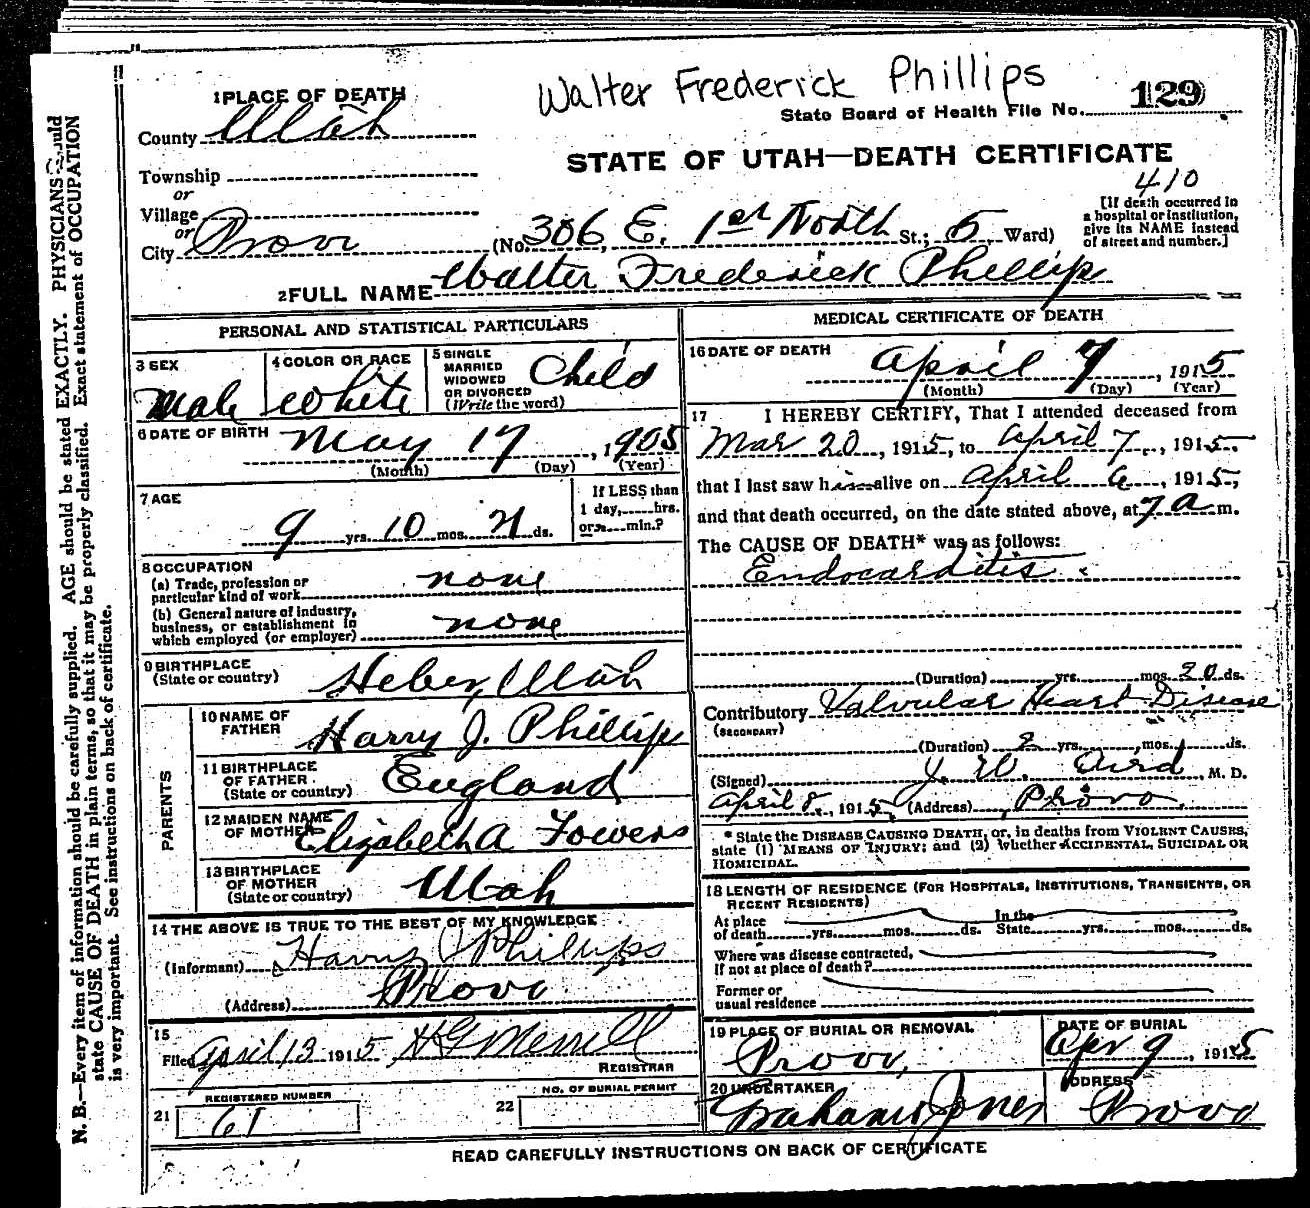 Walter Frederick Phillips
State Board of Health File No. 129
STATE OF UTAH—DEATH CERTIFICATE
410
1 PLACE OF DEATH
County Utah
Township
or
Village
or
City Provo (No. 306 E. 1st North St.; 5 Ward)
[If death occurred in
a hospital or institution,
give its NAME instead
of street and number.]
2 FULL NAME Walter Frederick Phillips
PERSONAL AND STATISTICAL PARTICULARS
3 SEX
Male
4 COLOR OR RACE
White
5 SINGLE
MARRIED
WIDOWED
OR DIVORCED
(Write the word)
Child
6 DATE OF BIRTH May 17, 1905
(Month) (Day) (Year)
7 AGE
9 yrs. 10 mos. 21 ds.
If LESS than
1 day,......hrs.
or......min.?
8 OCCUPATION
(a) Trade, profession or
particular kind of work none
(b) General nature of industry,
business, or establishment in
which employed (or employer) none
9 BIRTHPLACE
(State or country) Heber, Utah
PARENTS
10 NAME OF
FATHER Harry J. Phillips
11 BIRTHPLACE
OF FATHER
(State or country) England
12 MAIDEN NAME
OF MOTHER Elizabeth A Fowers
13 BIRTHPLACE
OF MOTHER
(State or country) Utah
14 THE ABOVE IS TRUE TO THE BEST OF MY KNOWLEDGE
(Informant) Harry J Phillips
(Address) Provo
15
Filed April 13 1915 H G Merrill
REGISTRAR
REGISTERED NUMBER
21 61
NO. OF BURIAL PERMIT
22
MEDICAL CERTIFICATE OF DEATH
16 DATE OF DEATH April 7, 1915
(Month) (Day) (Year)
17 I HEREBY CERTIFY, That I attended deceased from
Mar 20, 1915, to April 7, 1915.
that I last saw him alive on April 6, 1915,
and that death occurred, on the date stated above, at 7 a m.
The CAUSE OF DEATH* was as follows:
Endocarditis.
(Duration) yrs. mos. 20 ds.
Contributory Valvular Heart Disease
(SECONDARY)
(Duration) 2 yrs. mos. ds.
(Signed) J. W. Aird, M. D.
April 8, 1915 (Address) Provo.
* State the DISEASE CAUSING DEATH, or, in deaths from VIOLENT CAUSES,
state (1) MEANS OF INJURY; and (2) whether ACCIDENTAL, SUICIDAL OR
HOMICIDAL.
18 LENGTH OF RESIDENCE (FOR HOSPITALS, INSTITUTIONS, TRANSIENTS, OR
RECENT RESIDENTS)
At place In the
of death......yrs......mos......ds. State......yrs......mos......ds.
Where was disease contracted,
If not at place of death?
Former or
usual residence
19 PLACE OF BURIAL OR REMOVAL
Provo,
DATE OF BURIAL
Apr 9, 1915
20 UNDERTAKER
Jones
ADDRESS
Provo
READ CAREFULLY INSTRUCTIONS ON BACK OF CERTIFICATE
N. B.—Every item of information should be carefully supplied. AGE should be stated EXACTLY. PHYSICIANS should
state CAUSE OF DEATH in plain terms, so that it may be properly classified. Exact statement of OCCUPATION
is very important. See instructions on back of certificate.